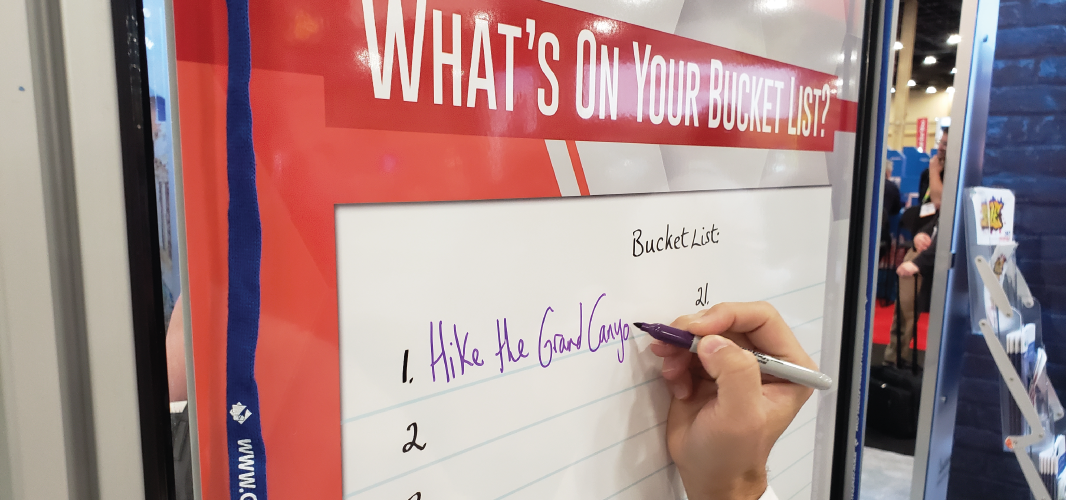 WHAT'S ON YOUR BUCKET LIST?
Bucket List:
21.
1. Hike the Grand Canyo
2
www.